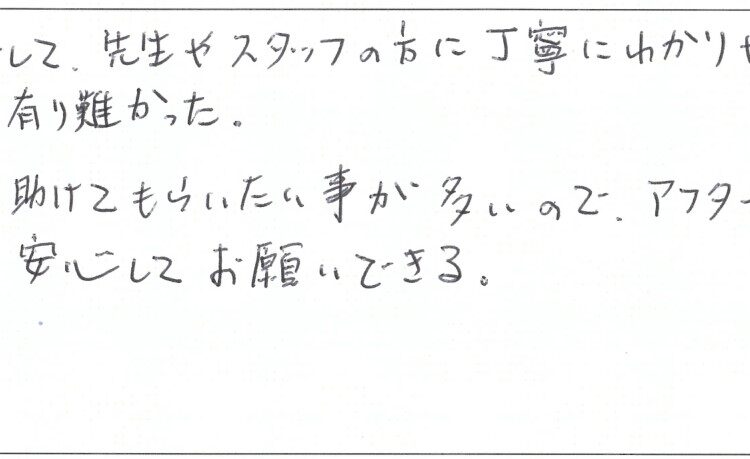 して、先生やスタッフの方に丁寧にわかりや
有り難かった。
助けてもらいたい事が多いので、アフター
安心してお願いできる。